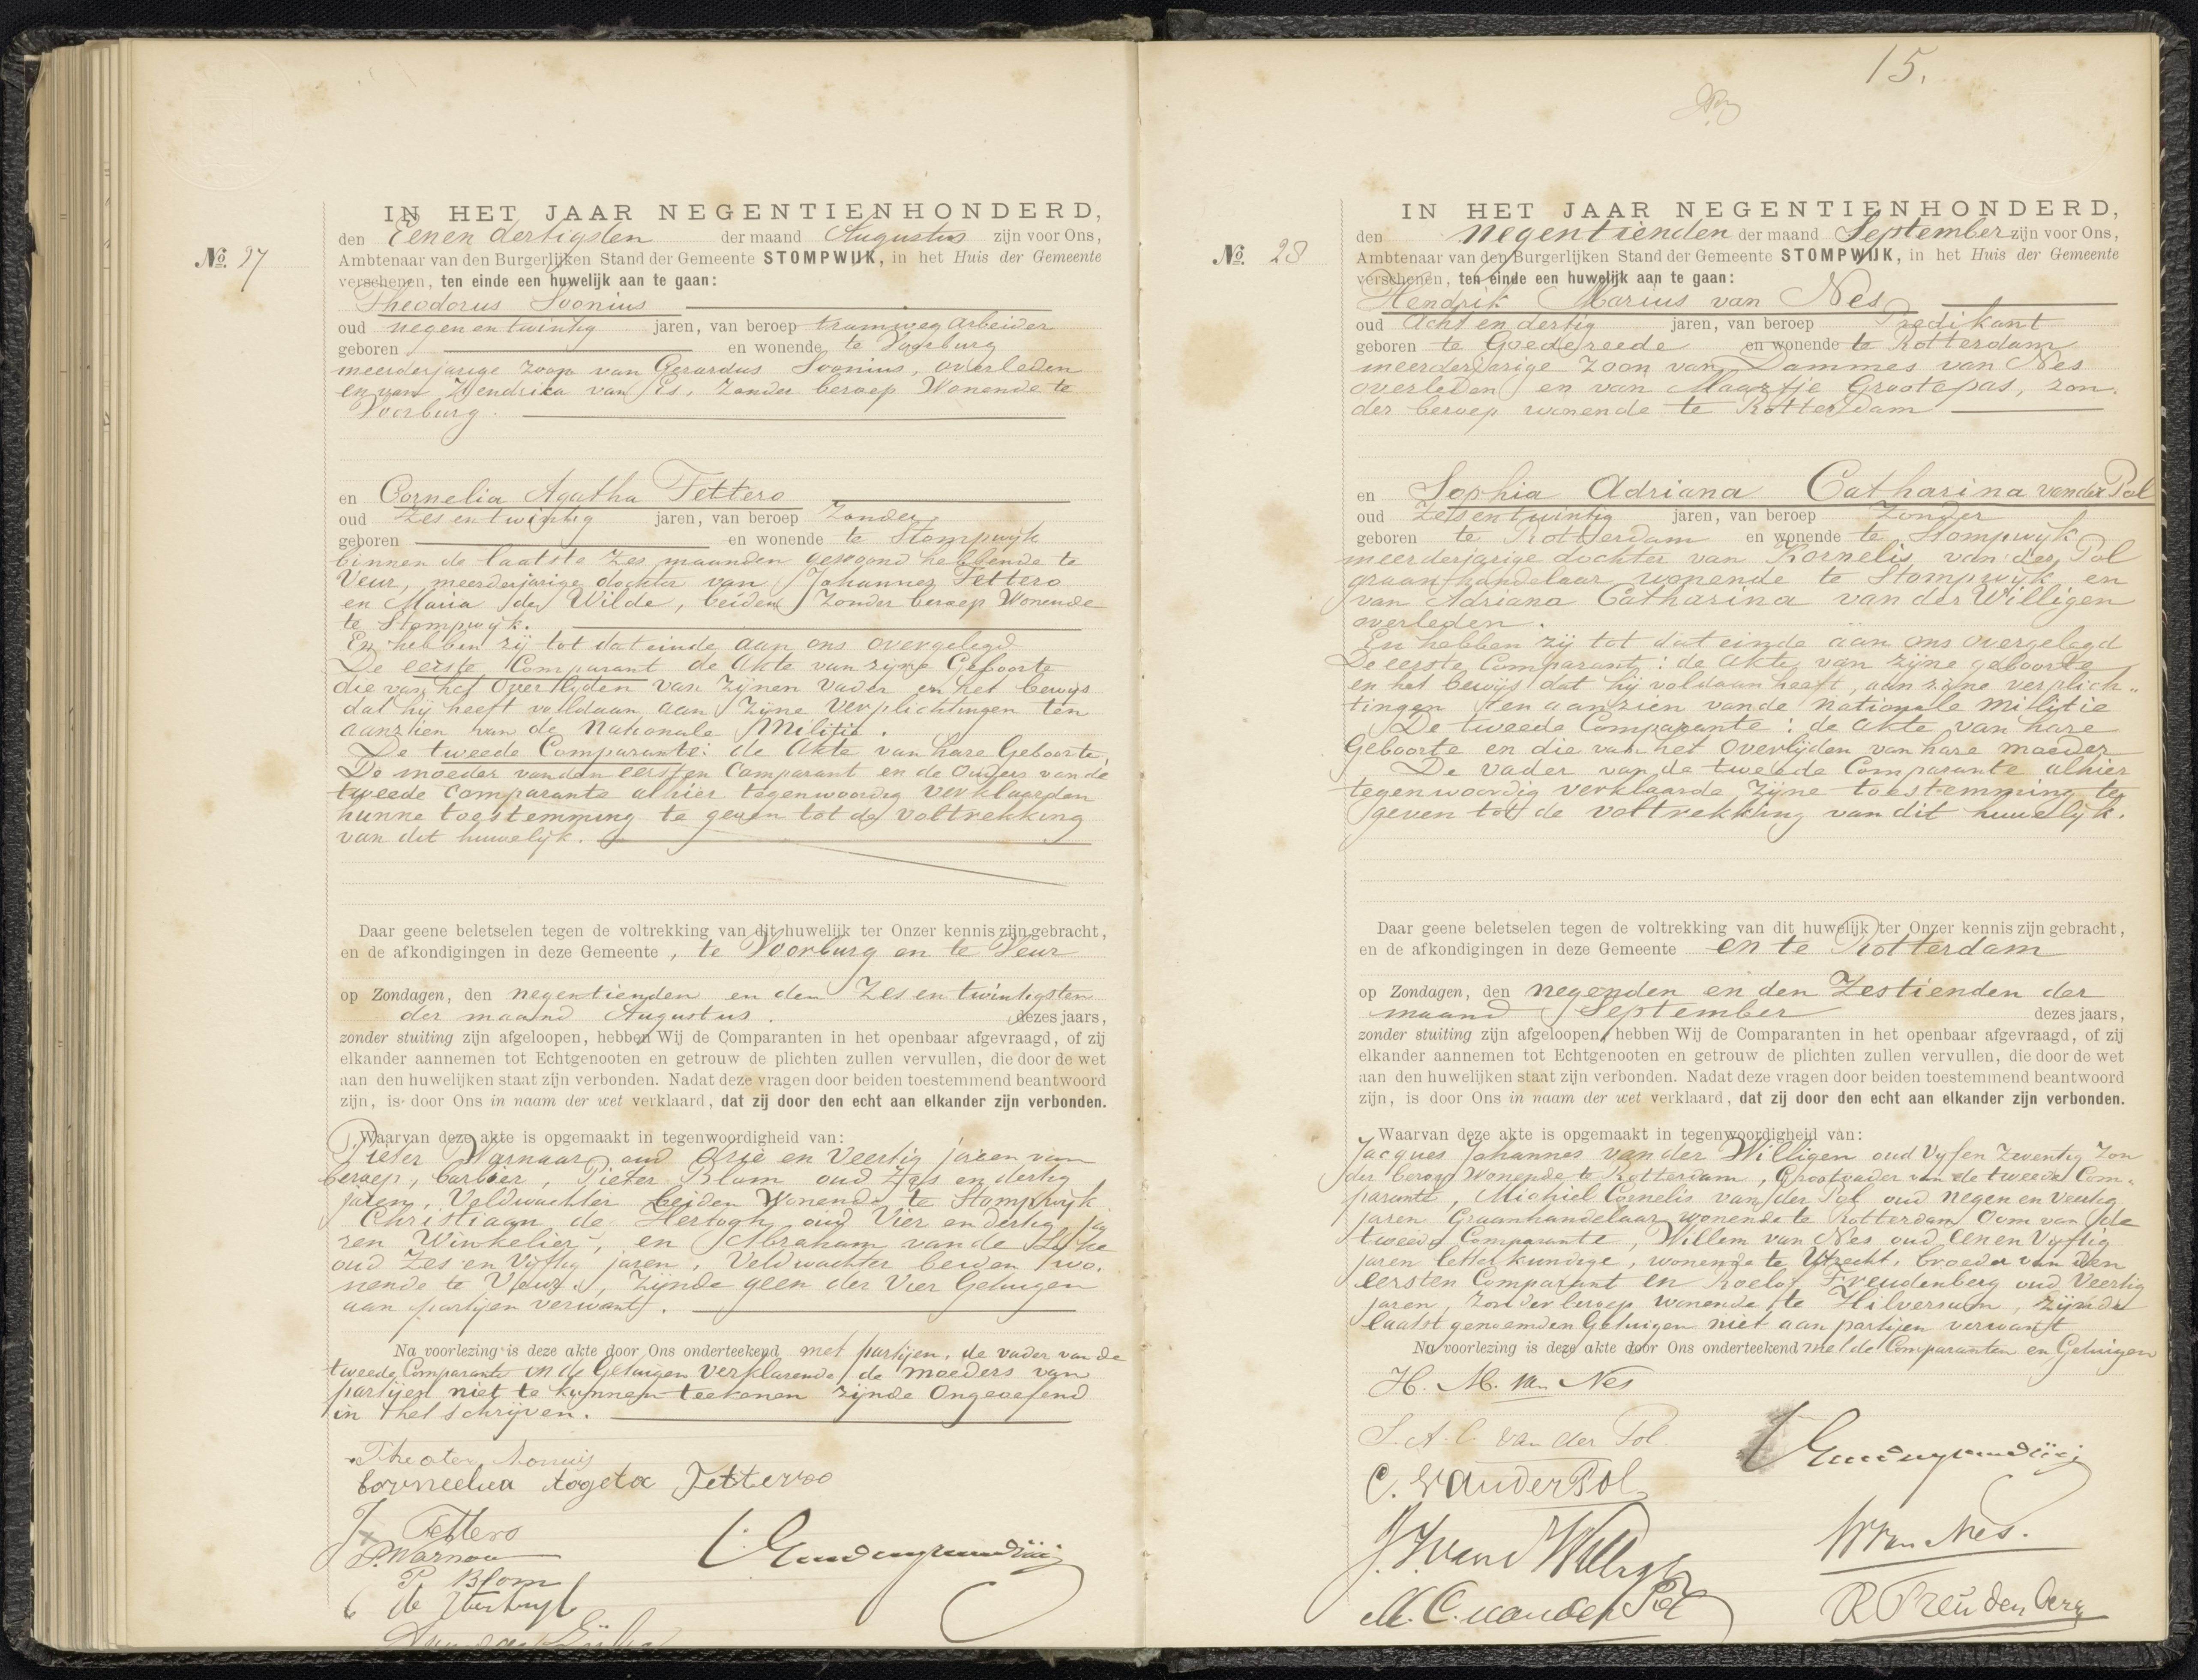 IN HET JAAR NEGENTIENHONDERD,
den Eenen dertigsten der maand Augustus zijn voor Ons,
No. 27
Ambtenaar van den Burgerlijken Stand der Gemeente STOMPWIJK, in het Huis der Gemeente
verschenen, ten einde een huwelijk aan te gaan:
Theodorus Soonius
oud negen en twintig jaren, van beroep tramweg arbeider
geboren en wonende te Voorburg
meerderjarige zoon van Gerardus Soonius, overleden
en van Hendrika van Es, zonder beroep Wonende te
Voorburg.
en Cornelia Agatha Tettero
oud Zes en twintig jaren, van beroep Zonder
geboren en wonende te Stompwijk
binnen de laatste zes maanden gewoond hebbende te
Veur, meerderjarige dochter van Johannes Tettero
en Maria de Wilde, beiden Zonder beroep Wonende
te Stompwijk.
En hebben zij tot dat einde aan ons overgelegd
De eerste Comparant de Akte van zijne Geboorte
die van het Overlijden van Zijnen vader en het bewijs
dat hij heeft voldaan aan Zijne Verplichtingen ten
aanzien van de Nationale Militie.
De tweede Comparante: de Akte van hare Geboorte,
De moeder van den eersten Comparant en de Ouders van de
tweede comparante alhier tegenwoordig verklaarden
hunne toestemming te geven tot de voltrekking
van dit huwelijk.
Daar geene beletselen tegen de voltrekking van dit huwelijk ter Onzer kennis zijn gebracht,
en de afkondigingen in deze Gemeente, te Voorburg en te Veur
op Zondagen, den negentienden en den Zes en twintigsten
der maand Augustus. dezes jaars,
zonder stuiting zijn afgeloopen, hebben Wij de Comparanten in het openbaar afgevraagd, of zij
elkander aannemen tot Echtgenooten en getrouw de plichten zullen vervullen, die door de wet
aan den huwelijken staat zijn verbonden. Nadat deze vragen door beiden toestemmend beantwoord
zijn, is door Ons in naam der wet verklaard, dat zij door den echt aan elkander zijn verbonden.
Waarvan deze akte is opgemaakt in tegenwoordigheid van:
Pieter Warnaar oud drie en Veertig jaren van
beroep, barbier, Pieter Blom oud Zes en dertig
jaren, Veldwachter beiden Wonende te Stompwijk
Christiaan de Hertogh oud Vier en dertig ja
ren Winkelier, en Abraham van de
oud Zes en Vijftig jaren, Veldwachter beiden wo,
nende te Veur, Zijnde geen der Vier Getuigen
aan partijen verwant.
Na voorlezing is deze akte door Ons onderteekend met partijen, de vader van de
tweede Comparante en de Getuigen verklarende de moeders van
partijen niet te kunnen teekenen zijnde Ongeoefend
in het schrijven.
Cornelia Tetteroo
J Tettero
P. Warnaar
P. Blom
15.
IN HET JAAR NEGENTIENHONDERD,
den Negentienden der maand September zijn voor Ons,
No. 28
Ambtenaar van den Burgerlijken Stand der Gemeente STOMPWIJK, in het Huis der Gemeente
verschenen, ten einde een huwelijk aan te gaan:
Hendrik Marius van Nes
oud Acht en dertig jaren, van beroep Predikant
geboren te Goedereede en wonende te Rotterdam
meerderjarige zoon van Dammes van Nes
overleden en van Maartje Grootepas, zon-
der beroep wonende te Rotterdam
en Sophia Adriana Catharina van der Pol
oud Zes en twintig jaren, van beroep Zonder
geboren te Rotterdam en wonende te Stompwijk
meerderjarige dochter van Kornelis van der Pol
graanhandelaar wonende te Stompwijk en
van Adriana Catharina van der Willigen
overleden.
En hebben zij tot dat einde aan ons overgelegd
De eerste Comparant: de akte van zijne geboorte
en het bewijs dat hij voldaan heeft, aan zijne verplich-
tingen ten aanzien van de Nationale Militie
De tweede Comparante: de akte van hare
Geboorte en die van het overlijden van hare moeder
De vader van de tweede Comparante alhier
tegenwoordig verklaarde zijne toestemming te
geven tot de voltrekking van dit huwelijk.
Daar geene beletselen tegen de voltrekking van dit huwelijk ter Onzer kennis zijn gebracht,
en de afkondigingen in deze Gemeente en te Rotterdam
op Zondagen, den negenden en den Zestienden der
maand September dezes jaars,
zonder stuiting zijn afgeloopen, hebben Wij de Comparanten in het openbaar afgevraagd, of zij
elkander aannemen tot Echtgenooten en getrouw de plichten zullen vervullen, die door de wet
aan den huwelijken staat zijn verbonden. Nadat deze vragen door beiden toestemmend beantwoord
zijn, is door Ons in naam der wet verklaard, dat zij door den echt aan elkander zijn verbonden.
Waarvan deze akte is opgemaakt in tegenwoordigheid van:
Jacques Johannes van der Willigen oud Vijf en Zeventig Zon
der beroep Wonende te Rotterdam, Grootvader van de tweede Com-
parante, Michiel Cornelis van der Pol oud negen en Veertig
jaren Graanhandelaar wonende te Rotterdam Oom van de
tweede Comparante, Willem van Nes oud Een en Vijftig
jaren letterkundige, wonende te Utrecht, broeder van den
eersten Comparant en Roelof Freudenberg oud Veertig
jaren, zonder beroep wonende te Hilversum, zijnde
laatst genoemden Getuigen niet aan partijen verwant
Na voorlezing is deze akte door Ons onderteekend met de Comparanten en Getuigen
H. M. van Nes
S. A. C. van der Pol
C. van der Pol
W van Nes.
M. C. van der Pol
R Freudenberg